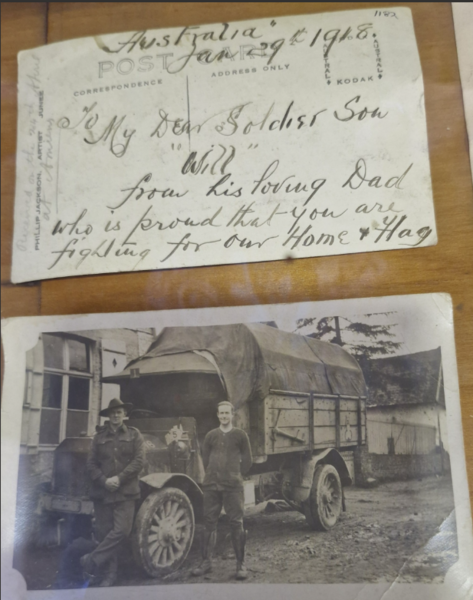 1182
"Australia"
Jan 29th 1918
POST CARD
CORRESPONDENCE
ADDRESS ONLY
AUSTRAL
KODAK
AUSTRAL
To My Dear Soldier Son
"Will"
from his loving Dad
who is proud that you are
fighting for our Home & Flag
PHILLIP JACKSON, ARTIST